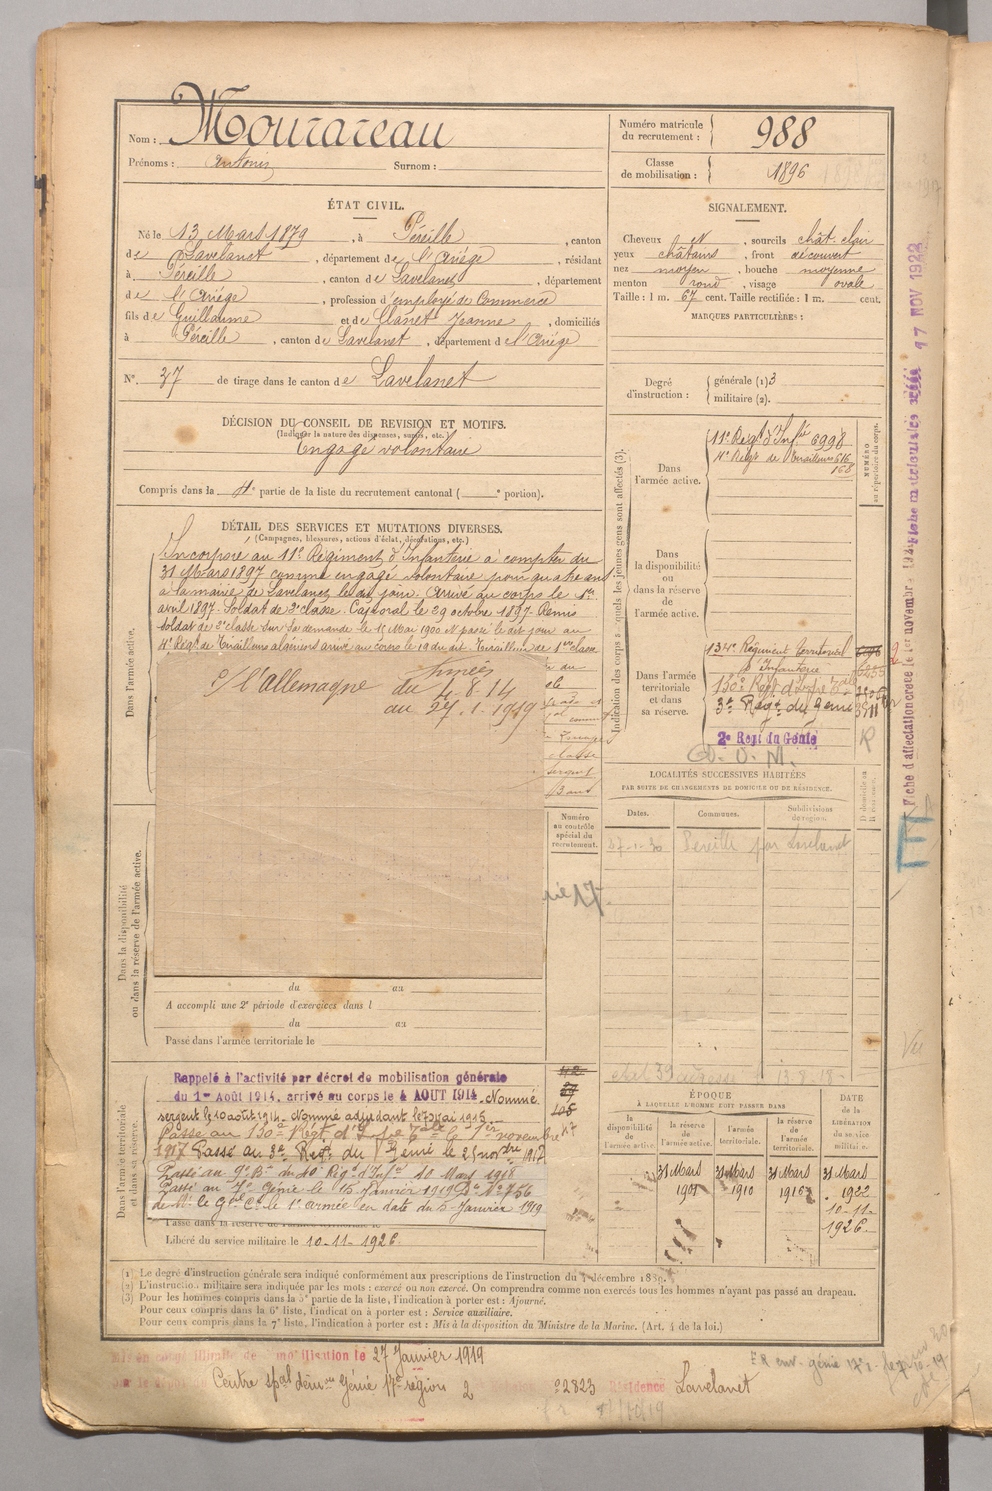 Nom : Mourareau
Prénoms : Antonin Surnom :
Numéro matricule du recrutement : 988
Classe de mobilisation : 1896
ÉTAT CIVIL.
Né le 13 Mars 1879, à Péreille, canton
de Lavelanet, département de l'Ariège, résidant
à Péreille, canton de Lavelanet, département
de l'Ariège, profession d'employé de Commerce
fils de Guillaume et de Clanet Jeanne, domiciliés
à Péreille, canton de Lavelanet, département de l'Ariège
N° 37 de tirage dans le canton de Lavelanet
SIGNALEMENT.
Cheveux et, sourcils chât. clair
yeux châtains, front découvert
nez moyen, bouche moyenne
menton rond, visage ovale
Taille : 1 m. 67 cent. Taille rectifiée : 1 m. cent.
MARQUES PARTICULIÈRES :
Degré d'instruction : générale (1) 3
militaire (2).
DÉCISION DU CONSEIL DE REVISION ET MOTIFS.
(Indiquer la nature des dispenses, sursis, etc.)
Engagé volontaire
Compris dans la 4e partie de la liste du recrutement cantonal ( e portion).
DÉTAIL DES SERVICES ET MUTATIONS DIVERSES.
(Campagnes, blessures, actions d'éclat, décorations, etc.)
Dans l'armée active.
Incorporé au 11e Régiment d'Infanterie à compter du
31 Mars 1897 comme engagé volontaire pour quatre ans
à la mairie de Lavelanet le dit jour. Arrivé au corps le 1er
avril 1897. Soldat de 2e classe. Caporal le 29 octobre 1897. Remis
soldat de 2e classe sur sa demande le 15 Mai 1900 et passé le dit jour au
4e Régt de Tirailleurs algériens arrivé au corps le 19 du dit. Tirailleur de 1ère classe
c/ l'Allemagne du 4.8.14
au 27.1.1919
classe
sergent
3 ans
Numéro au contrôle spécial du recrutement.
Dans la disponibilité ou dans la réserve de l'armée active.
du au
A accompli une 2e période d'exercices dans l
du au
Passé dans l'armée territoriale le
Dans l'armée territoriale et dans sa réserve.
Rappelé à l'activité par décret de mobilisation générale
du 1er Août 1914, arrivé au corps le 4 AOUT 1914. Nommé
sergent le 10 août 1914. Nommé adjudant le 20 mai 1915
Passé au 130e Régt d'Infie Tale le 1er novembre
1917 Passé au 3e Régt du Génie le 25 nobre 1917
Passé au 9e Bn du 10e Régt d'Infie 10 Mars 1918
Passé au 2e Génie le 15 Janvier 1919 Don No 756
de Mr le Gal Ct le 1e armée en date du 5 Janvier 1919
Passé dans la réserve de l'armée territoriale le
Libéré du service militaire le 10-11-1926.
Indication des corps auxquels les jeunes gens sont affectés (3).
NUMÉRO au répertoire du corps.
Dans l'armée active.
11e Régt d'Infie 6998
4e Régt de Tirailleurs 616
168
Dans la disponibilité ou dans la réserve de l'armée active.
Dans l'armée territoriale et dans sa réserve.
134e Régiment Territorial
d'Infanterie
130e Régt d'Infie Tale
3e Régt du Génie
2e Regt du Génie
D. O. M.
R
LOCALITÉS SUCCESSIVES HABITÉES
PAR SUITE DE CHANGEMENTS DE DOMICILE OU DE RÉSIDENCE.
Dates. Communes. Subdivisions de région. D domicile ou R résidence.
27-1-30 Péreille par Lavelanet
ÉPOQUE
À LAQUELLE L'HOMME DOIT PASSER DANS
la disponibilité de l'armée active.
la réserve de l'armée active.
l'armée territoriale.
la réserve de l'armée territoriale.
DATE de la LIBÉRATION du service militaire.
31 Mars 1901
31 Mars 1910
31 Mars 1916
31 Mars 1922
10-11-1926
(1) Le degré d'instruction générale sera indiqué conformément aux prescriptions de l'instruction du 4 décembre 1889.
(2) L'instruction militaire sera indiquée par les mots : exercé ou non exercé. On comprendra comme non exercés tous les hommes n'ayant pas passé au drapeau.
(3) Pour les hommes compris dans la 5e partie de la liste, l'indication à porter est : Ajourné.
Pour ceux compris dans la 6e liste, l'indication à porter est : Service auxiliaire.
Pour ceux compris dans la 7e liste, l'indication à porter est : Mis à la disposition du Ministre de la Marine. (Art. 4 de la loi.)
Mis en congé illimité de démobilisation le 27 Janvier 1919
Centre spal démon Génie 17e région 2
2823 Résidence Lavelanet
Fiche d'affectation créée le 1er novembre
17 NOV 1923
Vu